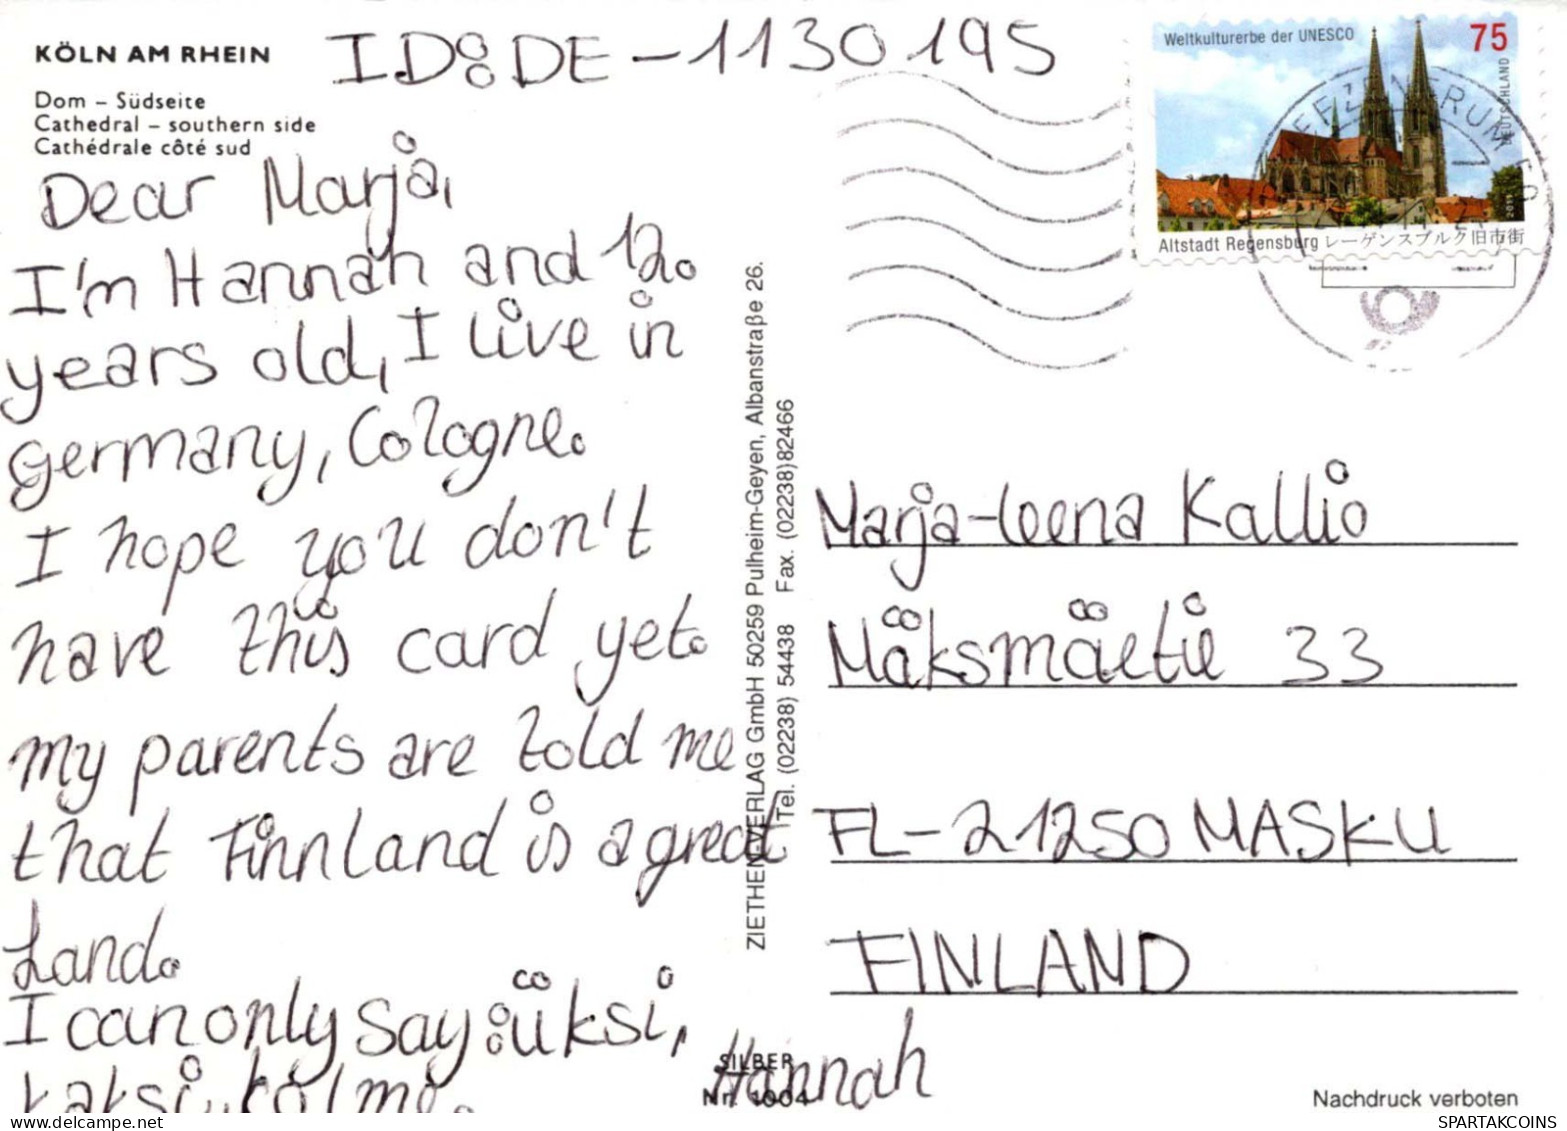 KÖLN AM RHEIN
Dom – Südseite
Cathedral – southern side
Cathédrale côté sud
ID: DE-1130195
Dear Marja,
I'm Hannah and 12.
years old, I live in
germany, Cologne.
I hope you don't
have this card yet.
my parents are told me
that Finnland is a great
Land.
I can only say: üksi,
kaksi, kolme.
Hannah
ZIETHEN-VERLAG GmbH 50259 Pulheim-Geyen, Albanstraße 26.
Tel. (02238) 54438 Fax. (02238)82466
SILBER
Nr. 1004
Weltkulturerbe der UNESCO
75
DEUTSCHLAND
2011
Altstadt Regensburg レーゲンスブルク旧市街
Marja-leena Kallio
Mäksmäetie 33
FL-21250 MASKU
FINLAND
Nachdruck verboten
SPARTAKCOINS